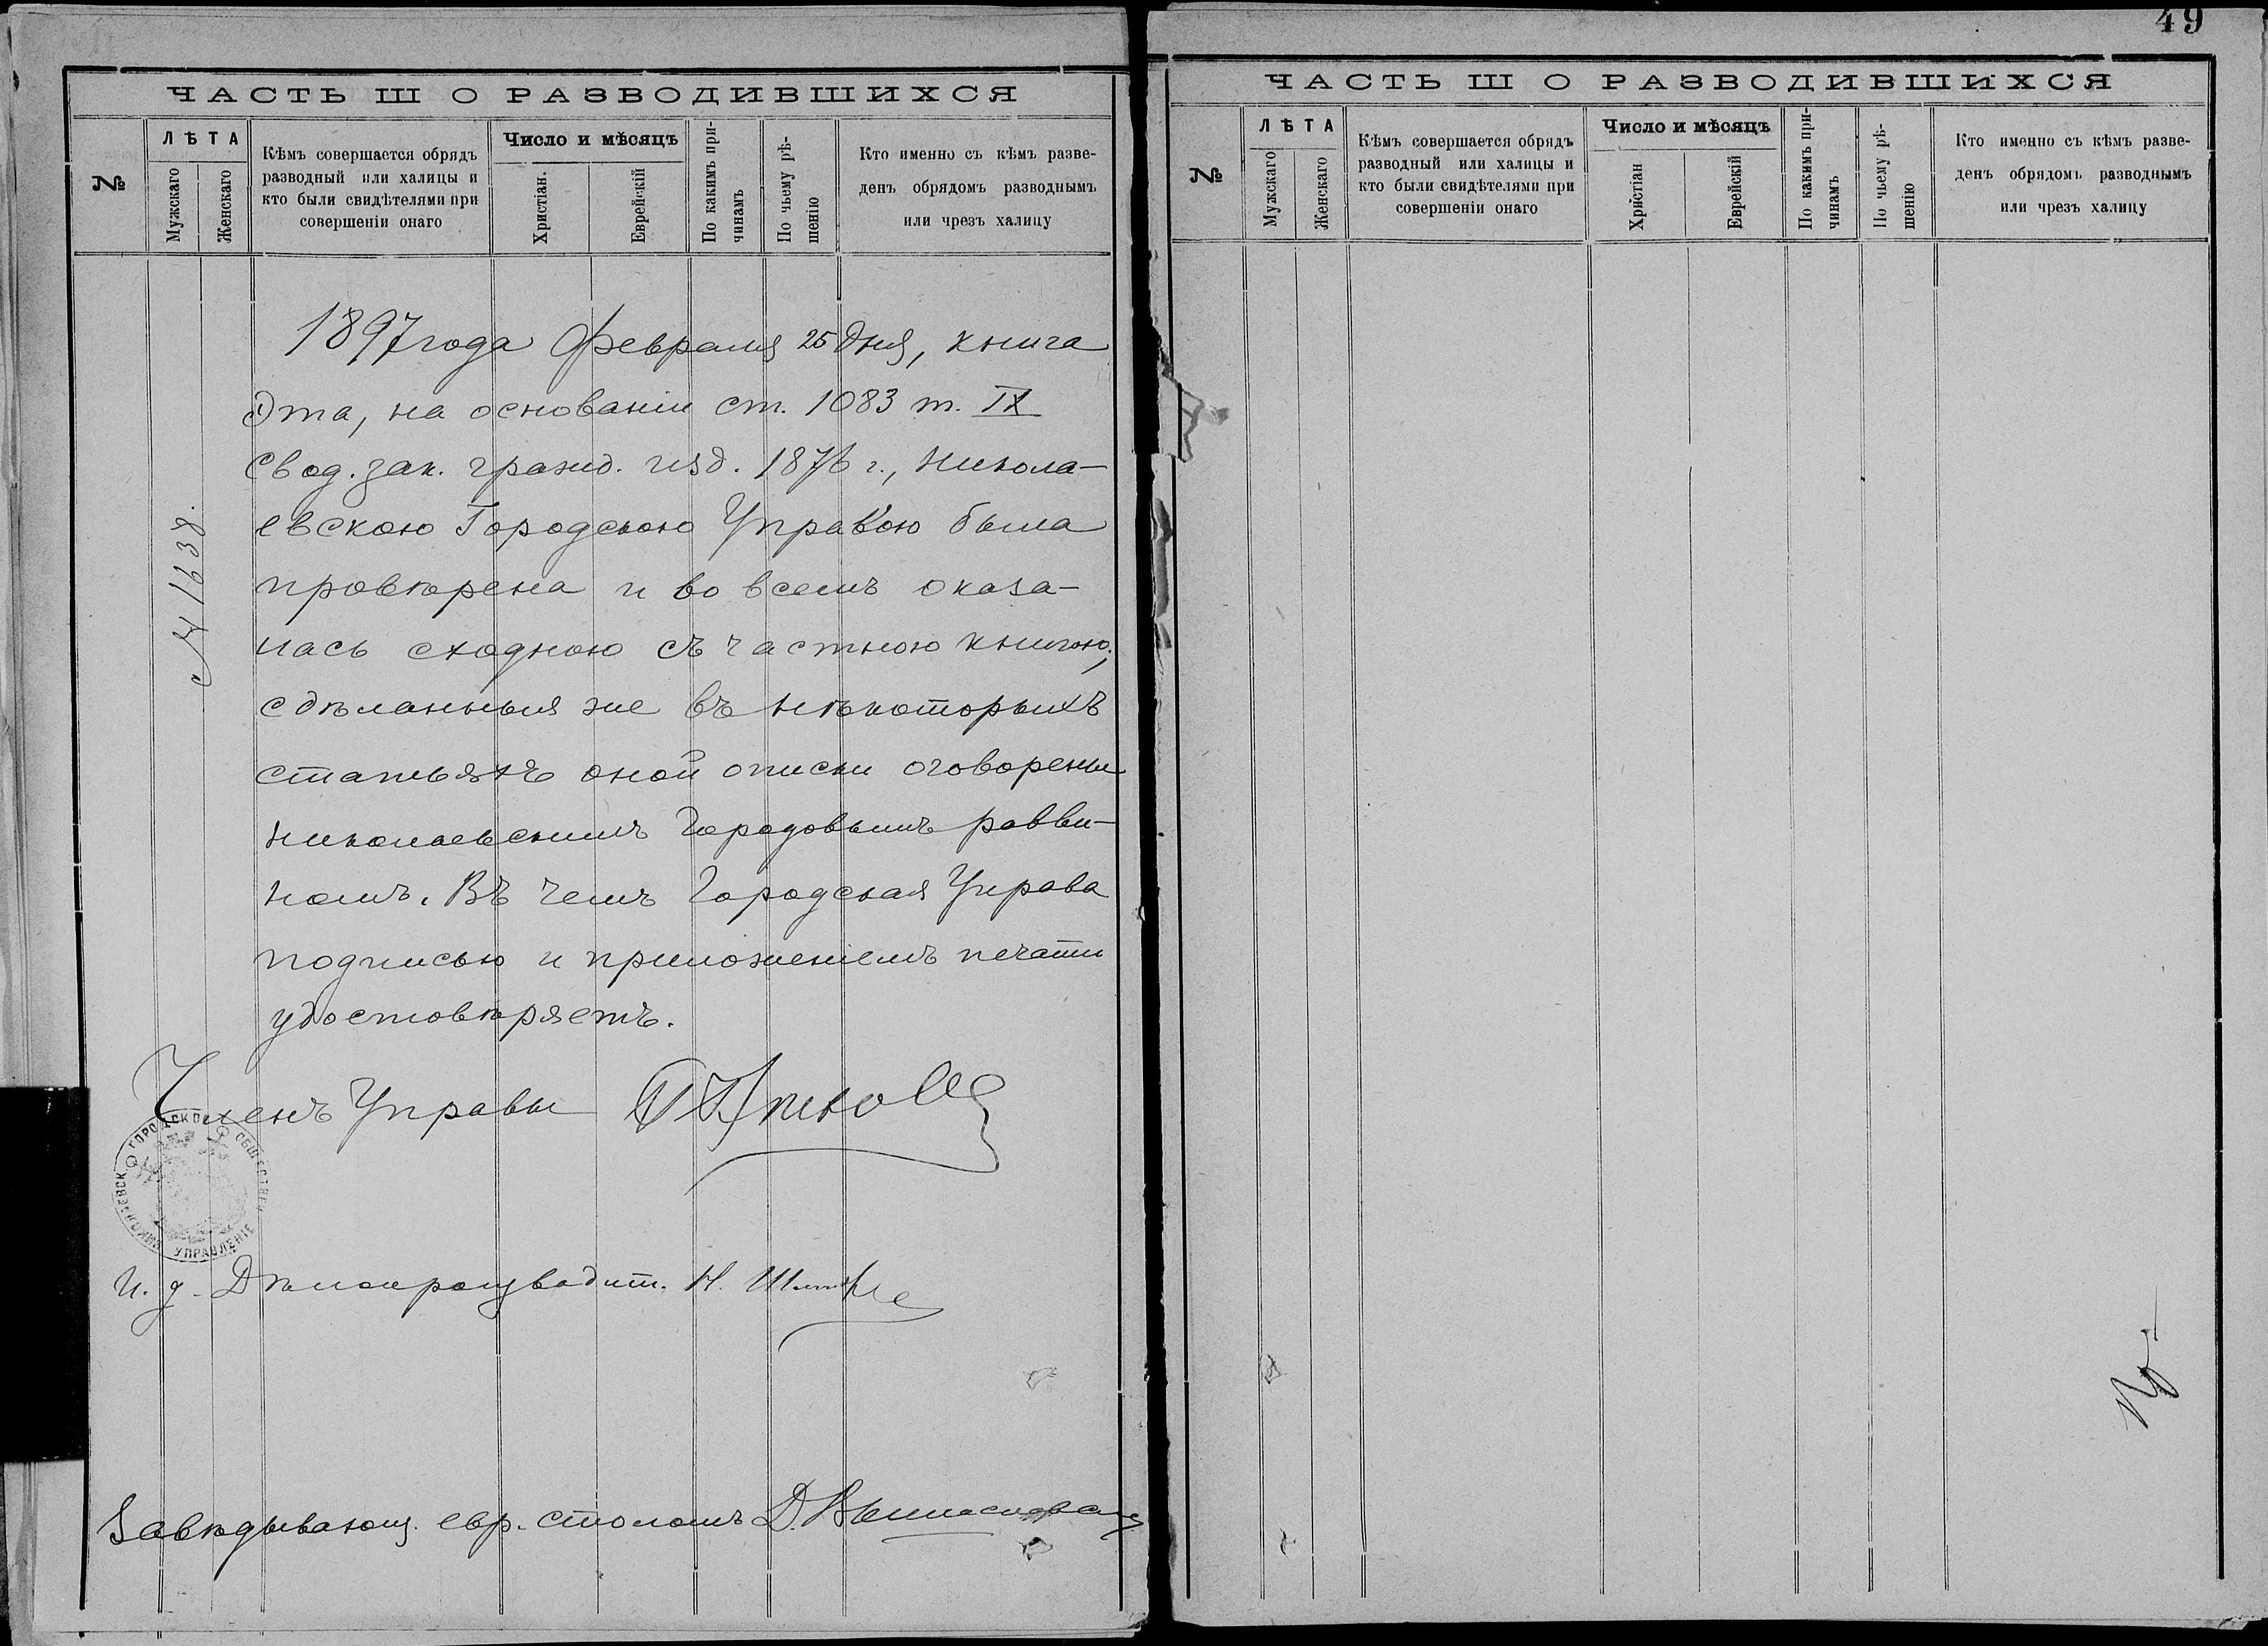 ЧАСТЬ III О РАЗВОДИВШИХСЯ
№
ЛѢТА
Мужскаго
Женскаго
Кѣмъ совершается обрядъ
разводный или халицы и
кто были свидѣтелями при
совершеніи онаго
Число и мѣсяцъ
Христіан.
Еврейскій
По какимъ при-
чинамъ
По чьему рѣ-
шенію
Кто именно съ кѣмъ разве-
денъ обрядомъ разводнымъ
или чрезъ халицу
1897 года Февраля 25 дня, книга
эта, на основаніи ст. 1083 т. IX
Свод. зак. гражд. изд. 1876 г., Никола-
евскою Городскою Управою была
провѣрена и во всемъ оказа-
лась сходною съ частною книгою;
сдѣланныя же въ нѣкоторыхъ
статьяхъ оной описки оговорены
Николаевскимъ Городовымъ равви-
номъ. Въ чемъ Городская Управа
подписью и приложеніемъ печати
удостовѣряетъ.
№ 1638.
Членъ Управы
НИКОЛАЕВСК. ГОРОДСКОЕ ОБЩЕСТВЕН. УПРАВЛЕНІЕ
И. д. Дѣлопроизводит. Н.
Завѣдывающ. евр. столомъ Д.
49
ЧАСТЬ III О РАЗВОДИВШИХСЯ
№
ЛѢТА
Мужскаго
Женскаго
Кѣмъ совершается обрядъ
разводный или халицы и
кто были свидѣтелями при
совершеніи онаго
Число и мѣсяцъ
Христіан
Еврейскій
По какимъ при-
чинамъ
По чьему рѣ-
шенію
Кто именно съ кѣмъ разве-
денъ обрядомъ разводнымъ
или чрезъ халицу